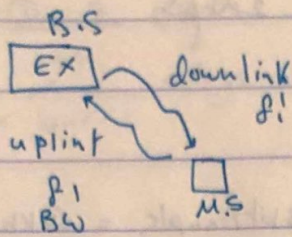 B.S
EX
downlink
f!
uplint
f1
BW
M.S